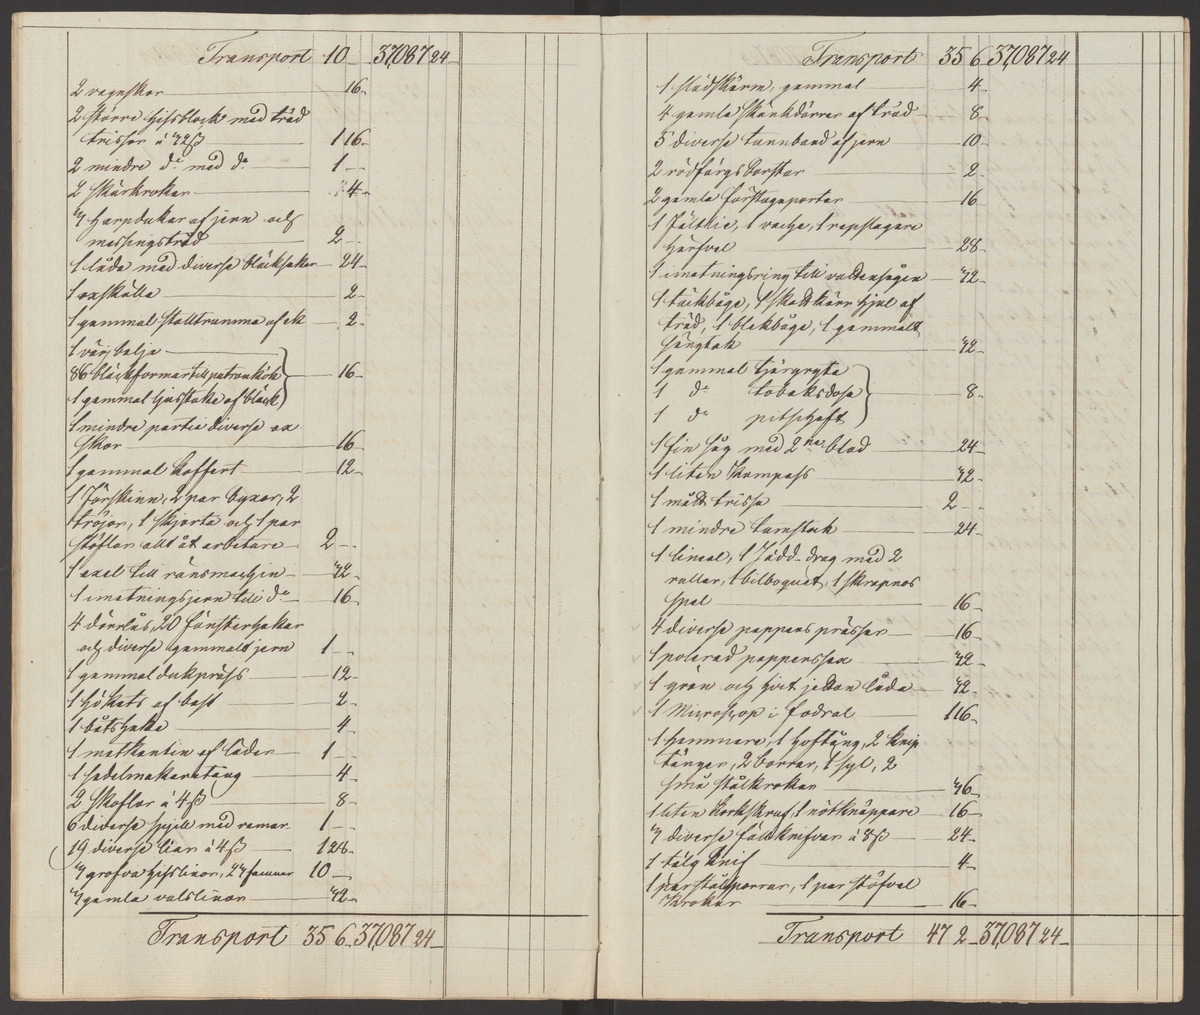 Transport 10 — 37,087 24 —
2 vagnskor 16 –
2 större hissblock med träd
trissor á 32 ß 1 16 –
2 mindre do med do 1 —
2 skärkrokar 4 –
3 harpdukar af jern och
messingstråd 2 —
1 låda med diverse bläcksaker 24 –
1 oxskälla 2 –
1 gammal stalltrumma af ek 2 –
1 värjbalja
86 bläckformar till patronkök 16 –
1 gammal ljusstake af bläck
1 mindre partie diverse ox
skor 16 –
1 gammal koffert 12 –
1 förskinn, 2 par byxor, 2
tröjor, 1 skjorta och 1 par
stöflor allt åt arbetare 2 —
1 axel till ränsmachin 32 –
1 imatningsjern till do 16 –
4 dörrlås, 20 fönsterhakar
och diverse gammalt jern 1 —
1 gammal dukpräss 12 –
1 hökats af bast 2 –
1 båtshake 4 –
1 matkantin af läder 1 —
1 sadelmakaretång 4 –
2 skoflor á 4 ß 8 –
6 diverse spjell med ramar 1 —
19 diverse liar á 4 ß 1 28 –
3 grofva hisslinor, 27 famnar 10 —
3 gamla valslinor 32 –
Transport 35 6 – 37,087 24 –
Transport 35 6 37,087 24
1 slädskärm, gammal 4 –
4 gamla skänkdörrar af träd 8 –
5 diverse tunnband af jern 10 –
2 rödfärgsborstar 2 –
2 gamla förstugeportar 16 –
1 fältlie, 1 1 repslagare
härfvel 28 –
1 imatningsring till vattensågen 32 –
1 täckbåge, 1 skottkärr hjul af
träd, 1 blekbåge, 1 gammalt
sängtak 32 –
1 gammal tjärgryta
1 do tobaksdosa 8 –
1 do pitschaft
1 fin såg med 2ne blad 24 –
1 liten kompass 32 –
1 mått trissa 2 —
1 mindre tumstock 24 –
1 lineal, 1 drag med 2
rullar, 1 bilboquet, 1 skrapnos
spel 16 –
4 diverse papperspressar 16 –
1 polerad papperssax 32 –
1 grön och hvit jetton låda 32 –
1 Microscop i fodral 1 16 –
1 hammare, 1 hoftång, 2 knip
tänger, 2 borrar, 1 syl, 2
små stålkrokar 36 –
1 liten korkskruf, 1 nötknäppare 16 –
3 diverse fällknifvar á 8 ß 24 –
1 tälgknif 4 –
1 par stålsporrar, 1 par stöfvel
krokar 16 –
Transport 47 2 – 37,087 24 –